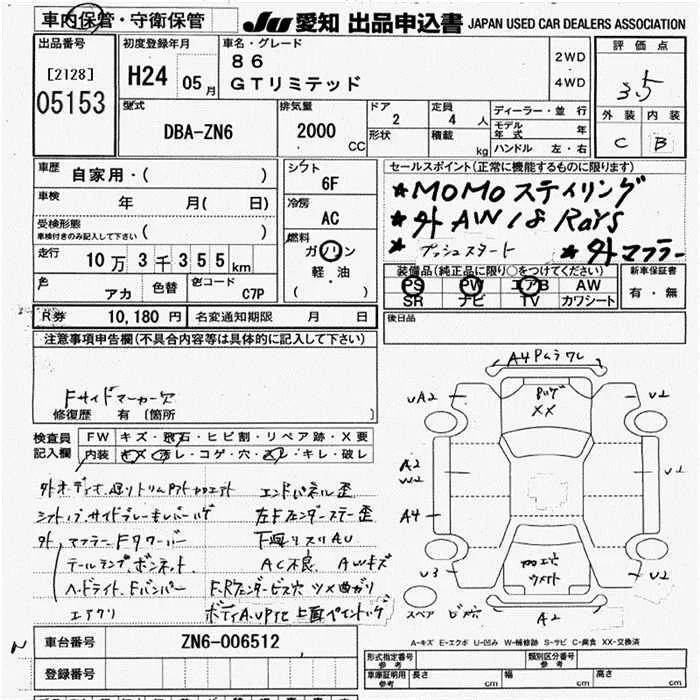 車内保管・守衛保管
JU 愛知 出品申込書 JAPAN USED CAR DEALERS ASSOCIATION
出品番号
[2128]
05153
初度登録年月
H24 05月
車名・グレード
86
GTリミテッド
2WD
4WD
評価点
3.5
外装 内装
C B
型式
DBA-ZN6
排気量
2000 CC
ドア
2
形状
定員
4 人
積載
kg
ディーラー・並行
モデル年式 年
ハンドル 左・右
車歴
自家用・( )
車検 年 月( 日)
受検形態
車検付きのみ記入して下さい ( )
走行 10万3千355km
色 アカ 色替 色コード C7P
シフト
6F
冷房
AC
燃料
ガソリン
軽・油
( )
セールスポイント(正常に機能するものに限ります)
★MOMOステイリング
★外AW18 RAYS
★プッシュスタート ★外マフラー
装備品(純正品に限り○をつけてください)
PS PW エアB AW
SR ナビ TV カワシート
新車保証書
有・無
R券 10,180円 名変通知期限 月 日
後日品
注意事項申告欄(不具合内容等は具体的に記入して下さい)
Fサイドマーカー穴
修復歴 有〔箇所 〕
検査員記入欄
FW キズ・飛石・ヒビ割・リペア跡・X要
内装 キズ・汚レ・コゲ・穴・スレ・キレ・破レ
エンドパネル歪
左Fフェンダーステー歪
下廻りスリAU
テールランプ、ボンネット
AC不良 AWキズ
ヘッドライト、Fバンパー
F、Rフェンダービス穴 ツメ曲ガリ
エアクリ
A4Pムラワレ
UA2
XX
U1
A2
W2
U1
A4
U3
U2
スペア
ビス穴
A2
A-キズ E-エクボ U-凹み W-補修跡 S-サビ C-腐食 XX-交換済
N
車台番号 ZN6-006512
登録番号
形式指定番号
参考
類別区分番号
参考
車庫証明用
参考
長さ cm 幅 cm 高さ cm